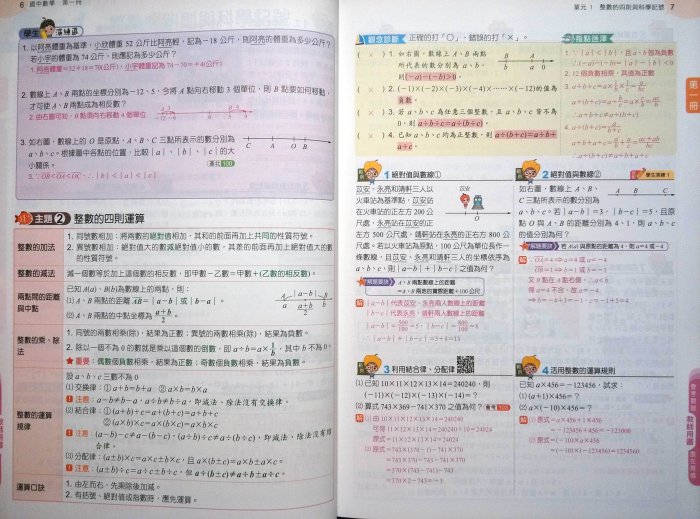 6 國中數學 第一冊
學生演練區
1. 以阿亮體重為基準,小欣體重 52 公斤比阿亮輕,記為-18 公斤,則阿亮的體重為多少公斤?
若小宇的體重為 74 公斤,則應記為多少公斤?
1. 阿亮體重=52+18=70(公斤),小宇體重記為 74-70=+4(公斤)
2. 數線上 A、B 兩點的坐標分別為-12、5,今將 A 點向右移動 3 個單位,則 B 點要如何移動,
才可使 A、B 兩點成為相反數?
2. 由右圖可知,B 點須向右移動 4 個單位
3. 如右圖,數線上的 O 是原點,A、B、C 三點所表示的數分別為
a、b、c。根據圖中各點的位置,比較|a|、|b|、|c|的大
小關係。
C A O B
主題 2 整數的四則運算
整數的加法
1. 同號數相加:將兩數的絕對值相加,其和的前面再加上共同的性質符號。
2. 異號數相加:絕對值大的數減絕對值小的數,其差的前面再加上絕對值大的數
的性質符號。
整數的減法
減一個數等於加上這個數的相反數,即甲數-乙數=甲數+(乙數的相反數)。
兩點間的距離
與中點
設 A(a)、B(b)為數線上的兩點,則:
(1) A、B 兩點的距離 AB=|a-b|或|b-a|。
(2) A、B 兩點的中點坐標為 a+b/2。
整數的乘、除
法
1. 同號的兩數相乘(除),結果為正數;異號的兩數相乘(除),結果為負數。
2. 除以一個不為 0 的數就是乘以這個數的倒數,即 a÷b=a×1/b,其中 b 不為 0。
★ 重要:偶數個負數相乘,結果為正數;奇數個負數相乘,結果為負數。
整數的運算
規律
設 a、b、c 三數不為 0
(1) 交換律:① a+b=b+a ② a×b=b×a
注意:a-b≠b-a,a÷b≠b÷a,即減法、除法沒有交換律。
(2) 結合律:① (a+b)+c=a+(b+c)=a+b+c
② (a×b)×c=a×(b×c)=a×b×c
注意:(a-b)-c≠a-(b-c),(a÷b)÷c≠a÷(b÷c),即減法、除法沒有結
合律。
(3) 分配律:(a±b)×c=a×c±b×c,且 a×(b±c)=a×b±a×c。
注意:(a±b)÷c=a÷c±b÷c,但 a÷(b±c)≠a÷b±a÷c。
運算口訣
1. 由左而右,先乘除後加減。
2. 有括號、絕對值或指數時,應先運算。
單元 1 整數的四則與科學記號 7
觀念診斷 正確的打「○」,錯誤的打「×」。
( × ) 1. 如右圖,數線上 A、B 兩點
所代表的數分別為 a、b,
則(-a)-(-b)>0。
( × ) 2. (-1)×(-2)×(-3)×(-4)×……×(-12)的值為
負數。
( × ) 3. 若 a、b、c 為任意三個整數,且 a、b、c 皆不為
0,則 a÷b÷c=a÷(b÷c)。
( × ) 4. 已知 a、b、c 均為正整數,則 a÷(b+c)=a÷b+
a÷c。
指點迷津
2. 12 個負數相乘,其值為正數
1 絕對值與數線①
苡安、永亮和靖軒三人以
火車站為基準點,苡安站
在火車站的正左方 200 公
尺處,永亮站在苡安的正
左方 500 公尺處,靖軒站在永亮的正右方 800 公
尺處。若以火車站為原點,100 公尺為單位長作一
條數線,且苡安、永亮和靖軒三人的坐標依序為
a、b、c,則|a-b|+|b-c|之值為何?
解題要訣 A、B 兩點數線上的距離
=A、B 兩地的實際距離÷100 公尺
解 |a-b|代表苡安、永亮兩人數線上的距離
|b-c|代表永亮、靖軒兩人數線上的距離
2 絕對值與數線② 學生演練 1
如右圖,數線上 A、B、
C 三點所表示的數分別為
a、b、c。若|a-b|=3,|b-c|=5,且原
點 O 與 A、B 的距離分別為 4、1,則 a、b、c
的值分別為何?
解題要訣 若 A(a) 與原點的距離為 4,則 a=4 或-4
3 利用結合律、分配律
(1) 已知 10×11×12×13×14=240240,則
(-11)×(-12)×(-13)×(-14)=?
(2) 算式 743×369-741×370 之值為何?
解 (1) 由 10×11×12×13×14=240240
可得 11×12×13×14=240240÷10=24024
原式=11×12×13×14=24024
(2) 原式=743×(370-1)-741×370
=743×370-743-741×370
=370×(743-741)-743
=370×2-743=-3
4 活用整數的運算規則
已知 a×456=-123456,試求:
(1) (a+1)×456=?
(2) a×(-10)×456=?
解 (1) 原式=a×456+1×456
=-123456+456=-123000
(2) 原式=(-10)×a×456
=(-10)×(-123456)=1234560
第一冊
教師用書